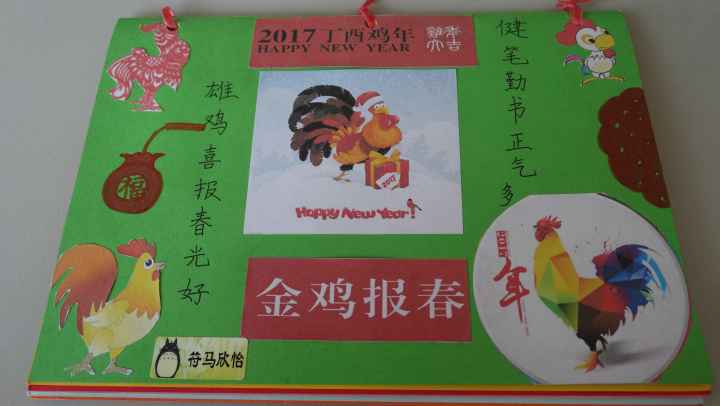 2017丁酉鸡年
HAPPY NEW YEAR
雞年大吉
健笔勤书正气多
雄鸡喜报春光好
福
2017
Happy New Year!
金鸡报春
年
符马欣怡